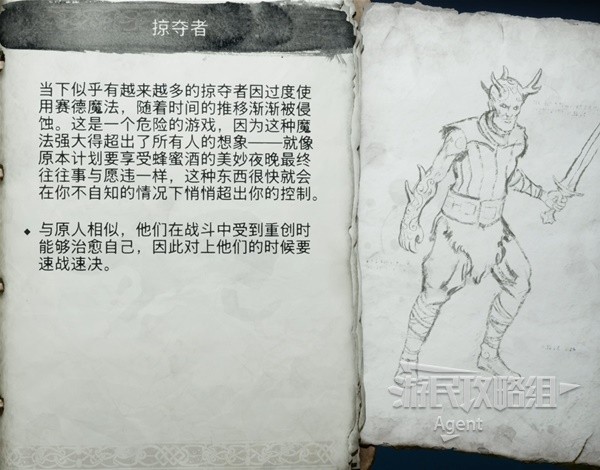 掠夺者
当下似乎有越来越多的掠夺者因过度使
用赛德魔法，随着时间的推移渐渐被侵
蚀。这是一个危险的游戏，因为这种魔
法强大得超出了所有人的想象——就像
原本计划要享受蜂蜜酒的美妙夜晚最终
往往事与愿违一样，这种东西很快就会
在你不自知的情况下悄悄超出你的控制。
◆ 与原人相似，他们在战斗中受到重创时
能够治愈自己，因此对上他们的时候要
速战速决。
游民攻略组
Agent